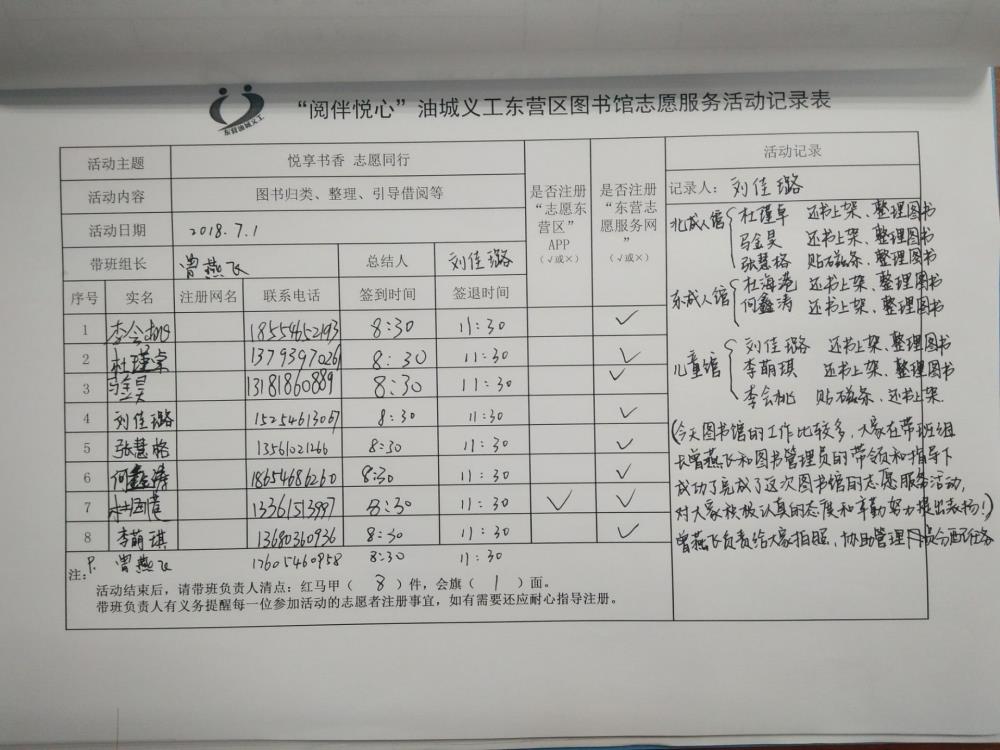 东营油城义工
“阅伴悦心”油城义工东营区图书馆志愿服务活动记录表
活动主题 悦享书香 志愿同行
活动内容 图书归类、整理、引导借阅等
活动日期 2018.7.1
带班组长 曾燕飞 总结人 刘佳璐
是否注册“志愿东营区”APP（√或×）
是否注册“东营志愿服务网”（√或×）
序号 实名 注册网名 联系电话 签到时间 签退时间
1 李会 18554652193 8:30 11:30 √
2 杜瑾卓 13793970261 8:30 11:30 √
3 马金昊 13181860889 8:30 11:30 √
4 刘佳璐 15254613067 8:30 11:30 √
5 张慧格 13561021266 8:30 11:30 √
6 何鑫涛 18654686260 8:30 11:30 √
7 13361513997 8:30 11:30 √ √
8 李萌琪 13680360936 8:30 11:30 √
9. 曾燕飞 17605460958 8:30 11:30
注：
活动结束后，请带班负责人清点：红马甲（ 8 ）件，会旗（ 1 ）面。
带班负责人有义务提醒每一位参加活动的志愿者注册事宜，如有需要还应耐心指导注册。
活动记录
记录人：刘佳璐
北成人馆 杜瑾卓 还书上架、整理图书
马金昊 还书上架、整理图书
张慧格 贴磁条、还书上架、整理图书
东成人馆 杜海港 还书上架、整理图书
何鑫涛 还书上架、整理图书
儿童馆 刘佳璐 还书上架、整理图书
李萌琪 还书上架、整理图书
李会 贴磁条、还书上架.
(今天图书馆的工作比较多，大家在带班组
长曾燕飞和图书管理员的带领和指导下
成功了完成了这次图书馆的志愿服务活动，
对大家积极认真的态度和辛勤努力提出表扬！)
曾燕飞负责给大家拍照，协助管理员分配任务